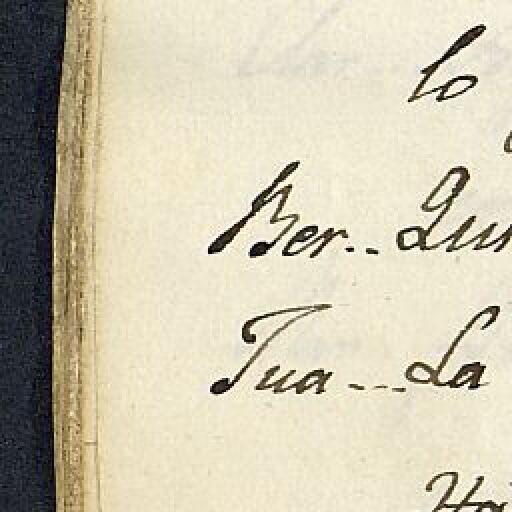 lo
Ber.. Qui
Jua --- La